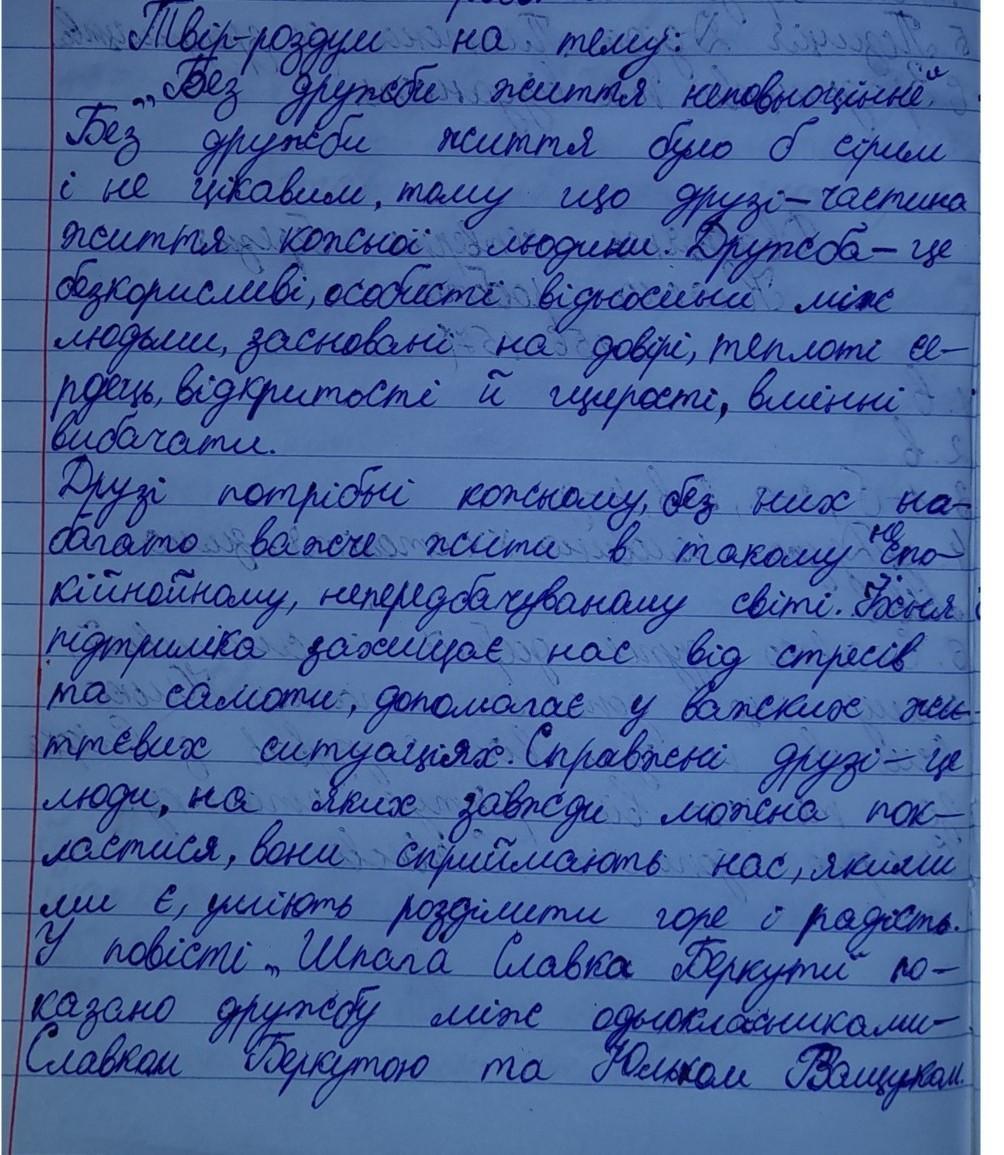 Твір-роздум на тему:
„Без дружби життя неповноцінне"
Без дружби життя було б сірим
і не цікавим, тому що друзі – частина
життя кожної людини. Дружба – це
безкорисливі, особисті відносини між
людьми, засновані на довірі, теплоті се-
рдець, відкритості й щирості, вмінні
вибачати.
Друзі потрібні кожному, без них на-
багато важче жити в такому неспо-
кійнойному, непередбачуваному світі. Їхня
підтримка захищає нас від стресів
та самоти, допомагає у важких жи-
ттєвих ситуаціях. Справжні друзі – це
люди, на яких завжди можна пок-
ластися, вони сприймають нас, якими
ми є, уміють розділити горе і радість.
У повісті „Шпага Славка Беркути" по-
казано дружбу між однокласниками –
Славком Беркутою та Юльком Ващуком.